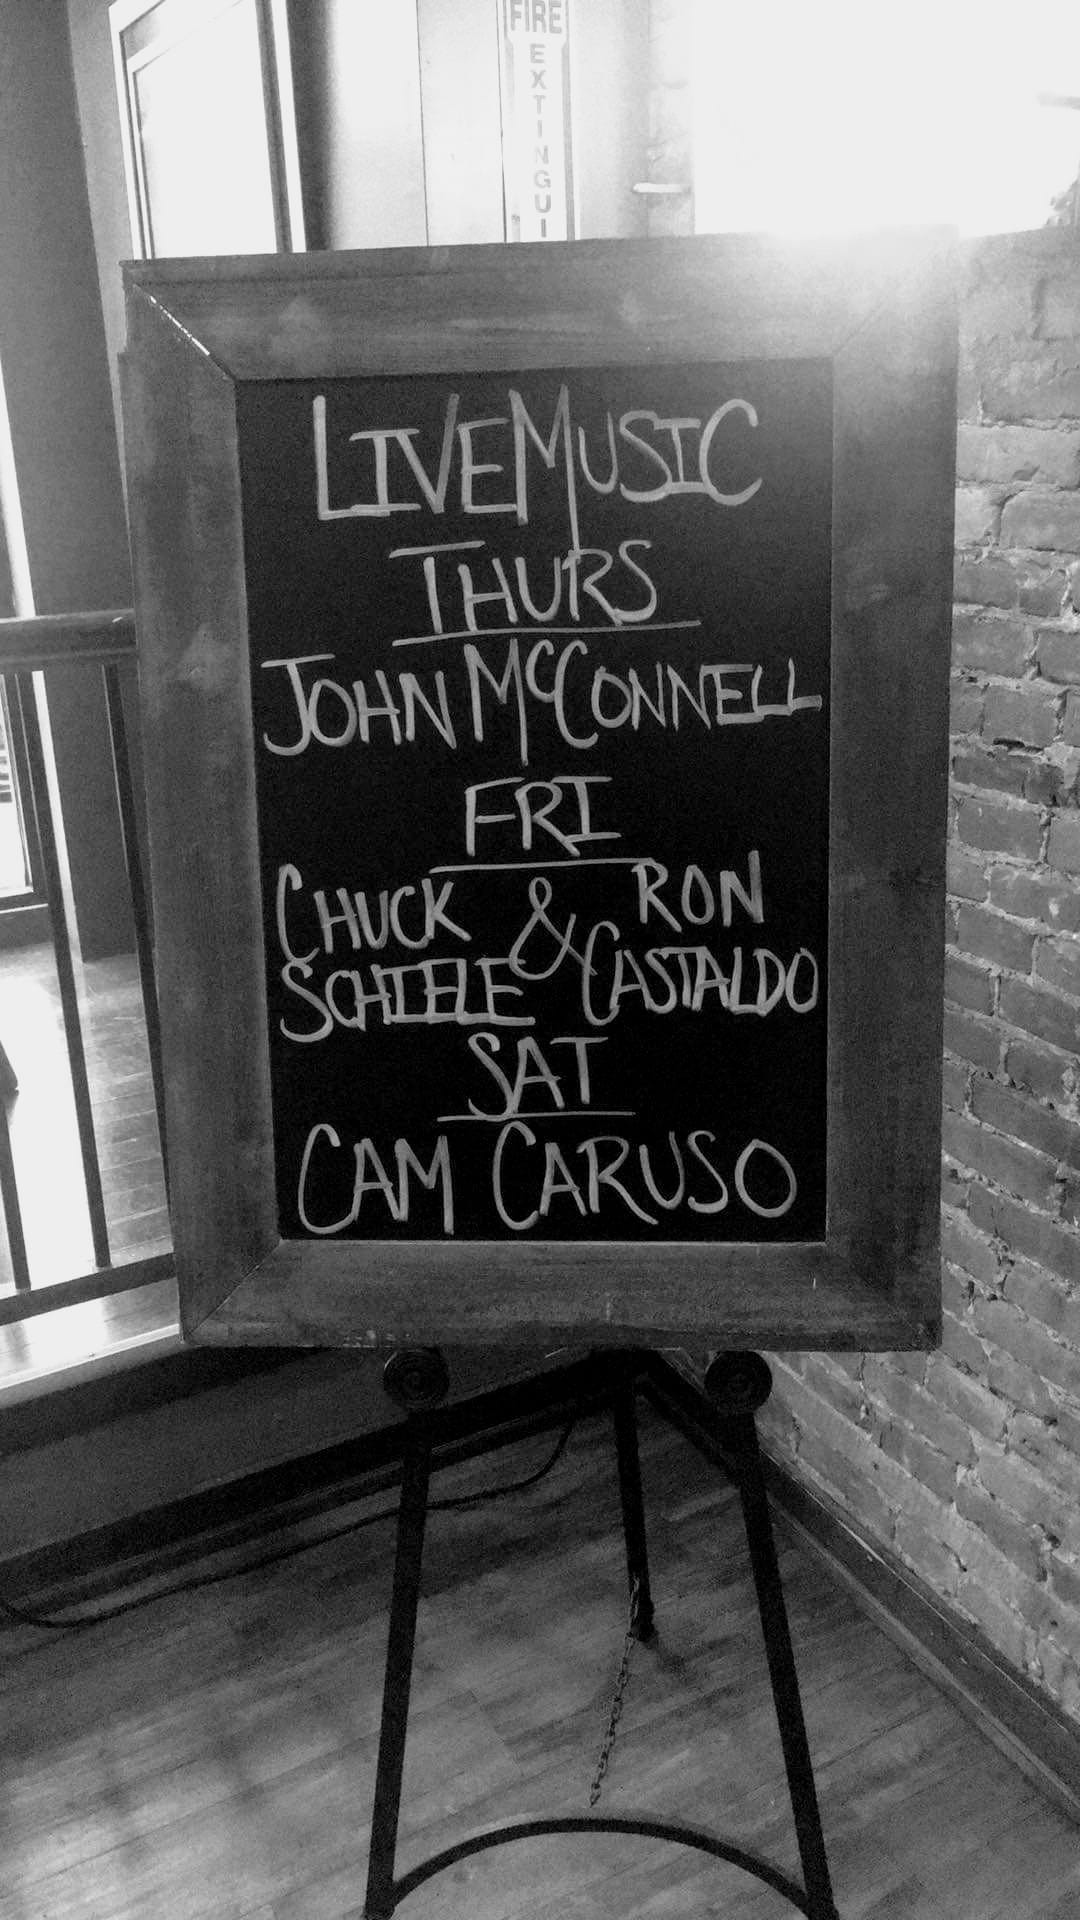 FIRE
EXTINGUI
LIVE MUSIC
THURS
JOHN McCONNELL
FRI
CHUCK & RON
SCHIELE CASTALDO
SAT
CAM CARUSO